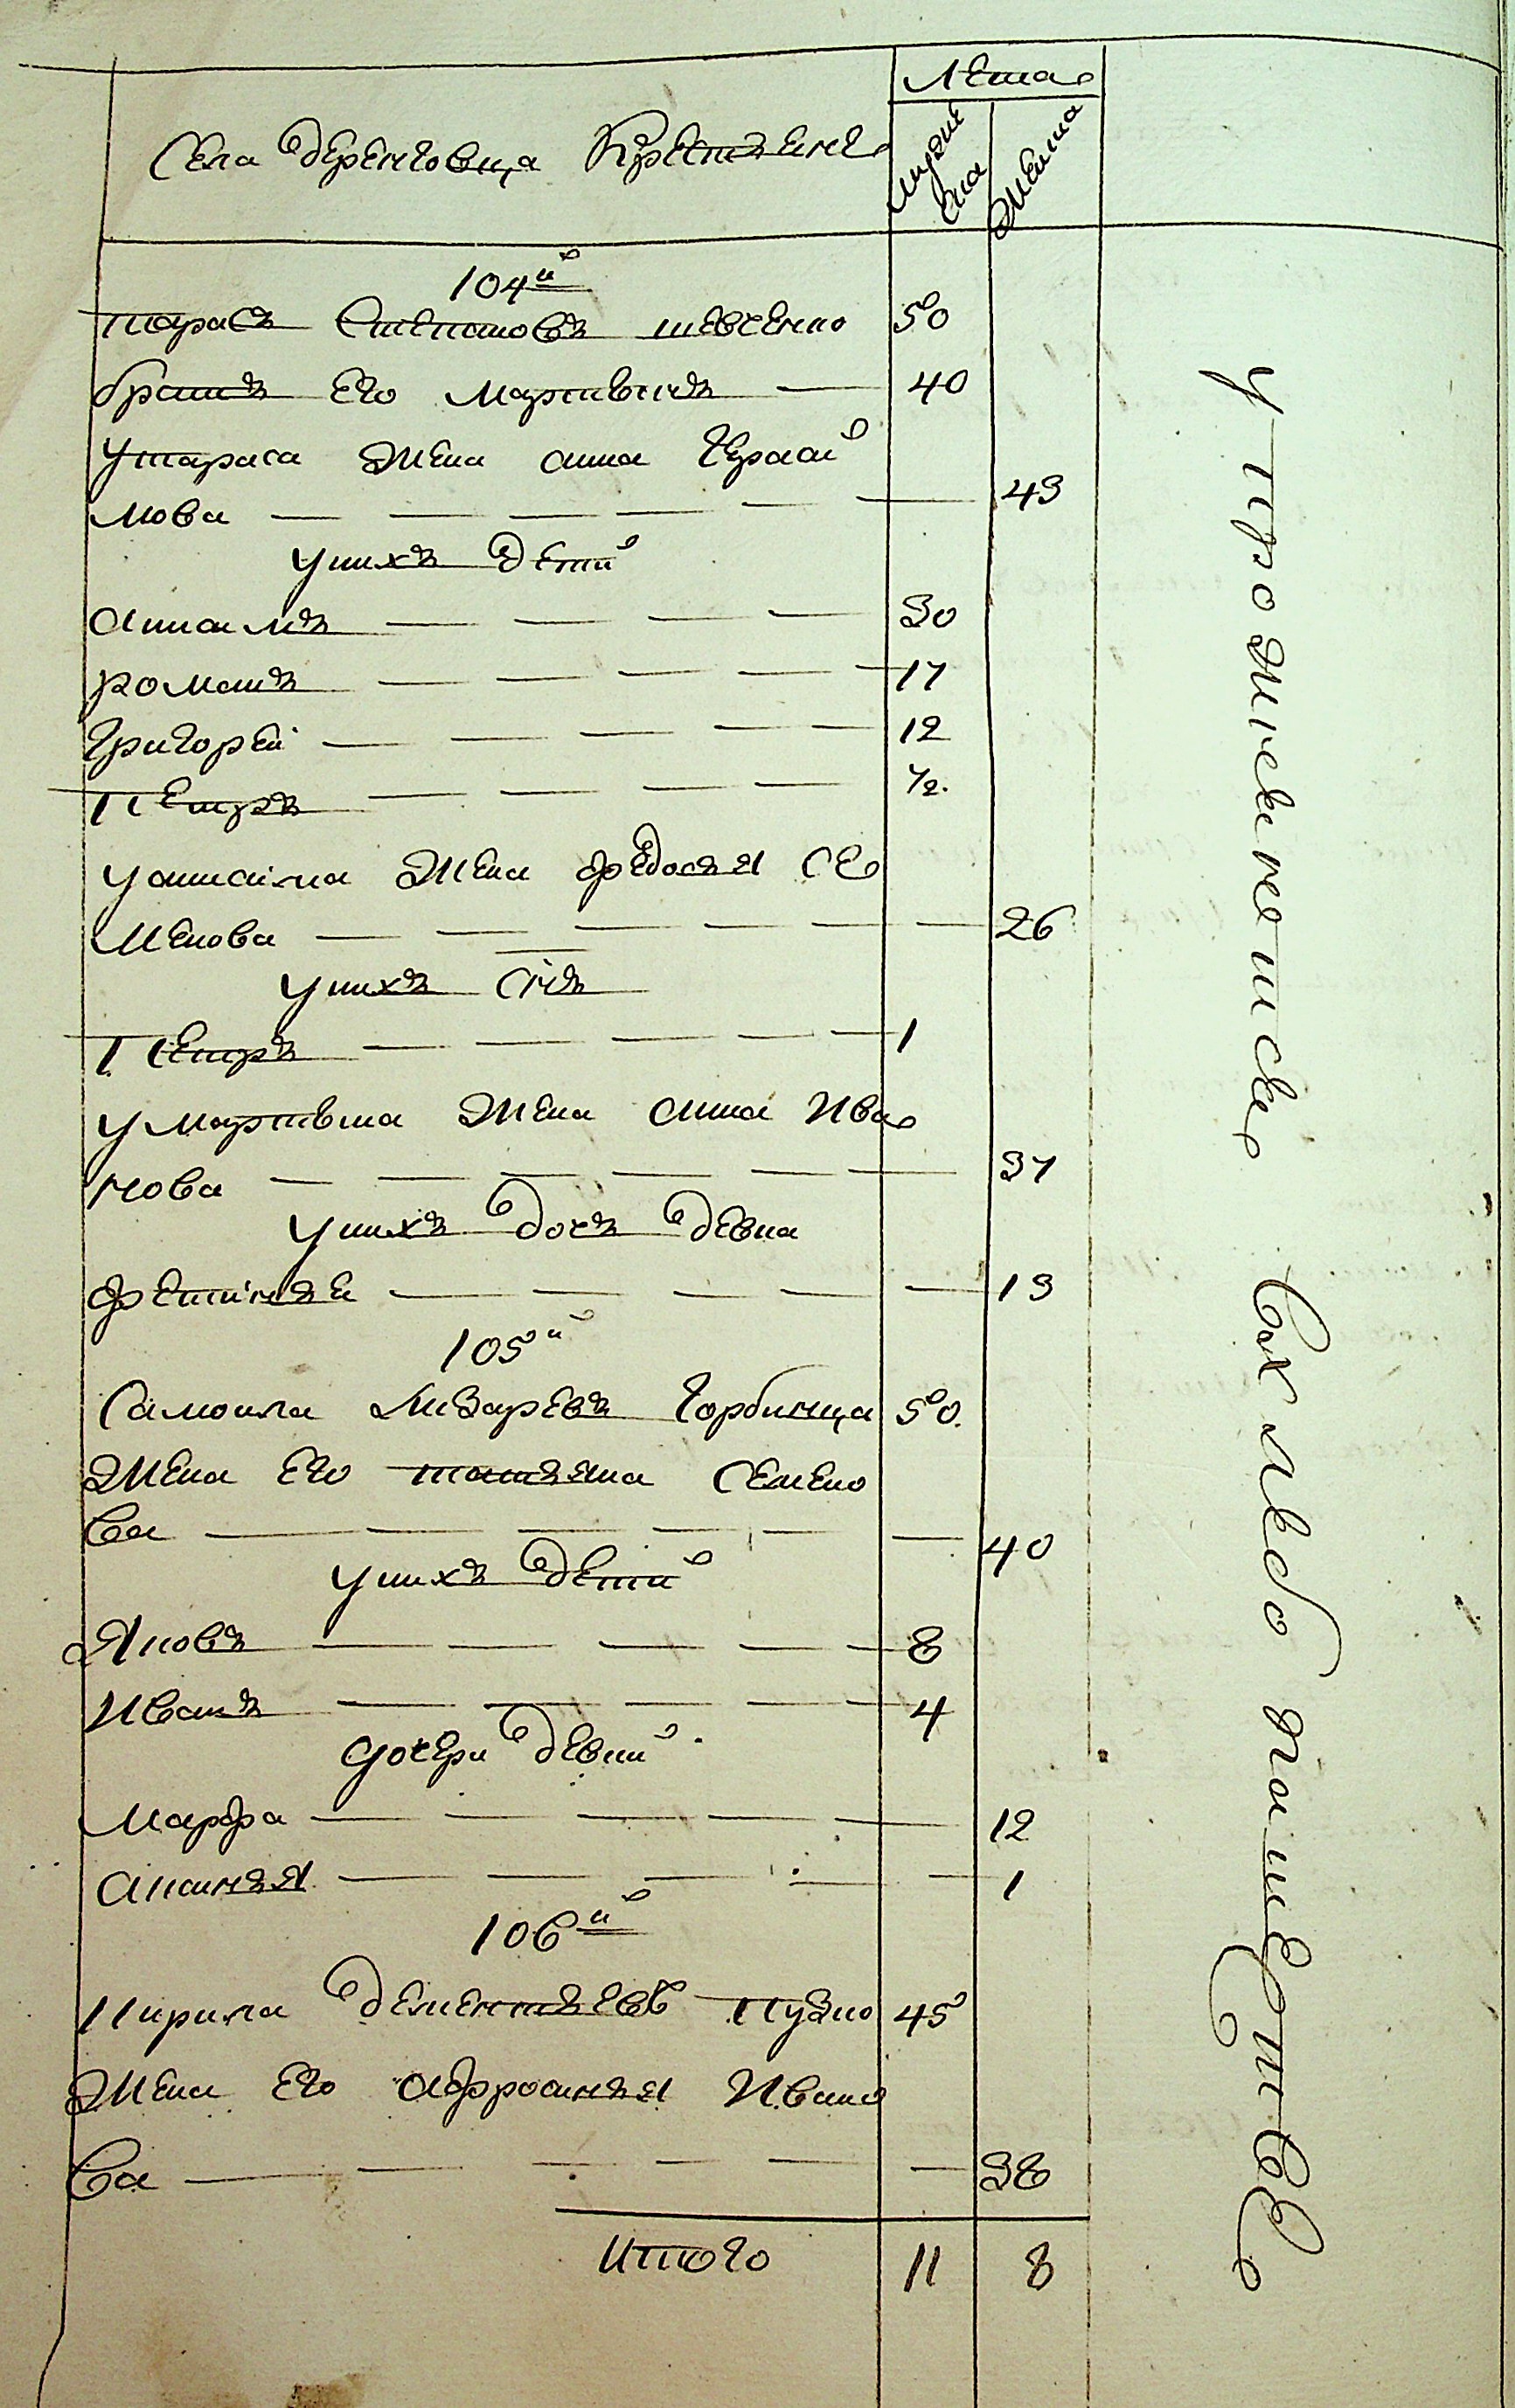 Лета
Села Деренковца Крестьяне
мужеска
женска
104й
тарасъ Степановъ шевченко 50
братъ Его мартинъ — 40
у тараса жена анна Герасй
мова — — — — — 43
у нихъ детй
Данаилъ — — — — 30
романъ — — — — 17
Григорей — — — — 12
Петръ — — — — 1/2.
жена федосья Се
менова — — — — — 26
у нихъ Снъ
Петръ — — — — — 1
у мартина жена анна Ива
нова — — — — — — 37
у нихъ дочь девка
фетинья — — — — — 13
105й
Самоила Лизаревъ Горбинца 50.
жена Его татьяна Семено
ва — — — — — — 40
у нихъ детй
Яковъ — — — — — 8
Иванъ — — — — — 4
дочери девкй
Марфа — — — — — 12
— — — — — 1
106й
Кирила дементьевъ Пузко 45
жена Его афросинья Ивано
ва — — — — — — 38
Итого 11 8